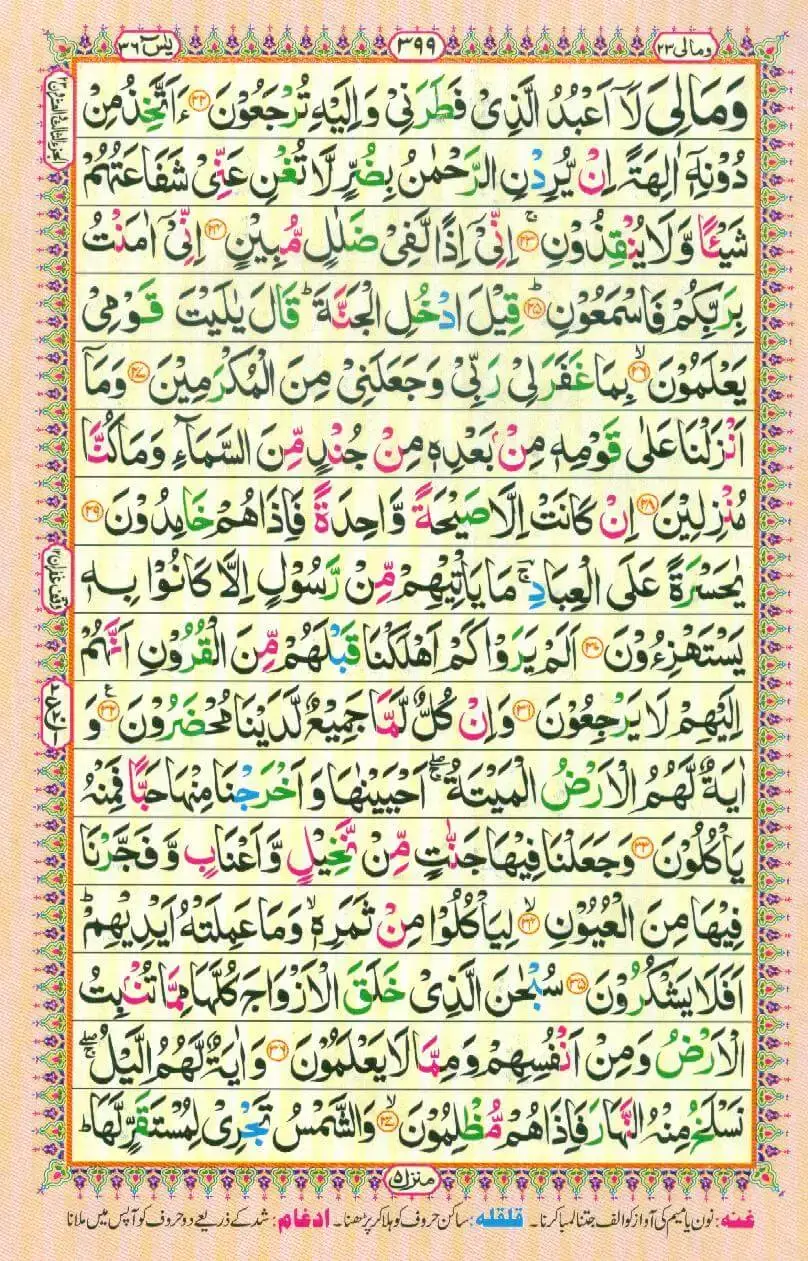 يٰسٓ ٣٦
٣٩٩
ومالی ٢٣
وَمَالِیَ لَاۤ اَعْبُدُ الَّذِیْ فَطَرَنِیْ وَاِلَیْهِ تُرْجَعُوْنَ ﴿۲۲﴾ ءَاَتَّخِذُ مِنْ
دُوْنِهٖۤ اٰلِهَةً اِنْ یُّرِدْنِ الرَّحْمٰنُ بِضُرٍّ لَّا تُغْنِ عَنِّیْ شَفَاعَتُهُمْ
شَیْـًٔا وَّلَا یُنْقِذُوْنِ ﴿۲۳﴾ۚ اِنِّیْۤ اِذًا لَّفِیْ ضَلٰلٍ مُّبِیْنٍ ﴿۲۴﴾ اِنِّیْۤ اٰمَنْتُ
بِرَبِّكُمْ فَاسْمَعُوْنِ ﴿۲۵﴾ؕ قِیْلَ ادْخُلِ الْجَنَّةَ ؕ قَالَ یٰلَیْتَ قَوْمِیْ
یَعْلَمُوْنَ ﴿۲۶﴾ۙ بِمَا غَفَرَ لِیْ رَبِّیْ وَجَعَلَنِیْ مِنَ الْمُكْرَمِیْنَ ﴿۲۷﴾ وَمَاۤ
اَنْزَلْنَا عَلٰی قَوْمِهٖ مِنْۢ بَعْدِهٖ مِنْ جُنْدٍ مِّنَ السَّمَآءِ وَمَا كُنَّا
مُنْزِلِیْنَ ﴿۲۸﴾ اِنْ كَانَتْ اِلَّا صَیْحَةً وَّاحِدَةً فَاِذَا هُمْ خَامِدُوْنَ ﴿۲۹﴾
یٰحَسْرَةً عَلَی الْعِبَادِ ۚ مَا یَاْتِیْهِمْ مِّنْ رَّسُوْلٍ اِلَّا كَانُوْا بِهٖ
یَسْتَهْزِءُوْنَ ﴿۳۰﴾ اَلَمْ یَرَوْا كَمْ اَهْلَكْنَا قَبْلَهُمْ مِّنَ الْقُرُوْنِ اَنَّهُمْ
اِلَیْهِمْ لَا یَرْجِعُوْنَ ﴿۳۱﴾ وَاِنْ كُلٌّ لَّمَّا جَمِیْعٌ لَّدَیْنَا مُحْضَرُوْنَ ﴿۳۲﴾ وَ
اٰیَةٌ لَّهُمُ الْاَرْضُ الْمَیْتَةُ ۖۚ اَحْیَیْنٰهَا وَ اَخْرَجْنَا مِنْهَا حَبًّا فَمِنْهُ
یَاْكُلُوْنَ ﴿۳۳﴾ وَجَعَلْنَا فِیْهَا جَنّٰتٍ مِّنْ نَّخِیْلٍ وَّاَعْنَابٍ وَّ فَجَّرْنَا
فِیْهَا مِنَ الْعُیُوْنِ ﴿۳۴﴾ۙ لِیَاْكُلُوْا مِنْ ثَمَرِهٖ ۙ وَمَا عَمِلَتْهُ اَیْدِیْهِمْ ؕ
اَفَلَا یَشْكُرُوْنَ ﴿۳۵﴾ سُبْحٰنَ الَّذِیْ خَلَقَ الْاَزْوَاجَ كُلَّهَا مِمَّا تُنْۢبِتُ
الْاَرْضُ وَمِنْ اَنْفُسِهِمْ وَمِمَّا لَا یَعْلَمُوْنَ ﴿۳۶﴾ وَاٰیَةٌ لَّهُمُ الَّیْلُ ۖۚ
نَسْلَخُ مِنْهُ النَّهَارَ فَاِذَا هُمْ مُّظْلِمُوْنَ ﴿۳۷﴾ۙ وَالشَّمْسُ تَجْرِیْ لِمُسْتَقَرٍّ لَّهَا ؕ
منزل ۵
غنہ: نون یا میم کی آواز کو الف جتنا لمبا کرنا۔ قلقلہ: ساکن حروف کو ہلا کر پڑھنا۔ ادغام: شد کے ذریعے دو حروف کو آپس میں ملانا